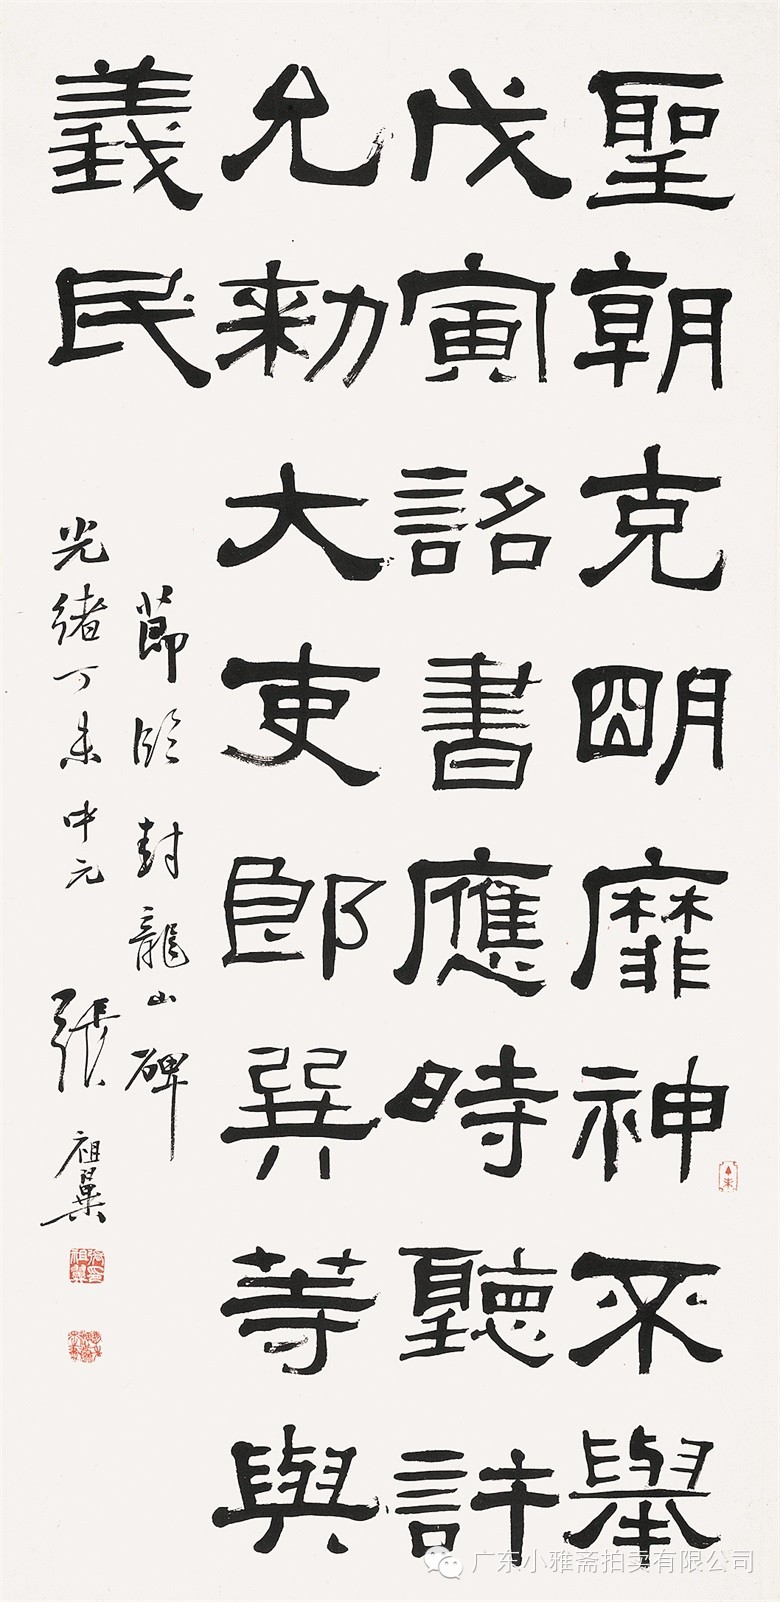 聖朝克朙靡神不舉
戊寅詔書應時聽許
允勑大吏郎巽等與
義民
節臨封龍山碑
光緒丁未中元 張祖翼
广东小雅斋拍卖有限公司